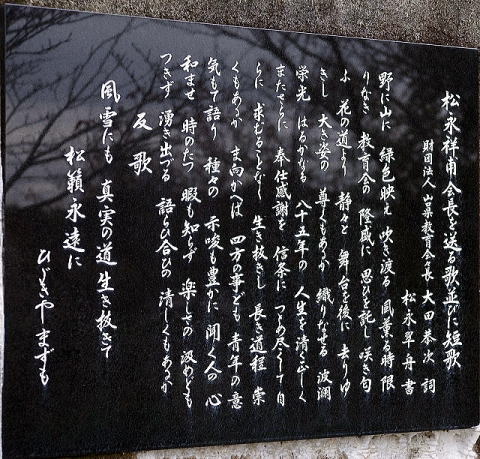 松永祥甫会長を送る歌並びに短歌
財団法人山梨教育会会長 大田恭次 詞
松永翠舟 書
野に山に 緑色映え 吹き渡る 風薫る時 限
りなき 教育会の 隆盛に 思ひを託し 咲き匂
ふ 花の道より 静々と 舞台を後に 去りゆ
きし 大き姿の 尊くもあるか 織りなせる 波瀾
栄光 はるかなる 八十五年の 人生を 清らしく
またさらに 奉仕感謝を 信条に つとめ尽くして 自
らに 求むることなく 生き抜きし 長き道程 崇
くもあるか ま向かへば 四方の事ども 青年の 意
気もて語り 種々の 示唆も豊かに 聞く人の 心
和ませ 時のたつ 暇も知らず 楽しさの 汲めども
つきず 湧き出づる 語らひ合ひの 清しくもあるか
反歌
風雪にも 真実の道 生き抜きて
松籟永遠に
ひびきやまずも